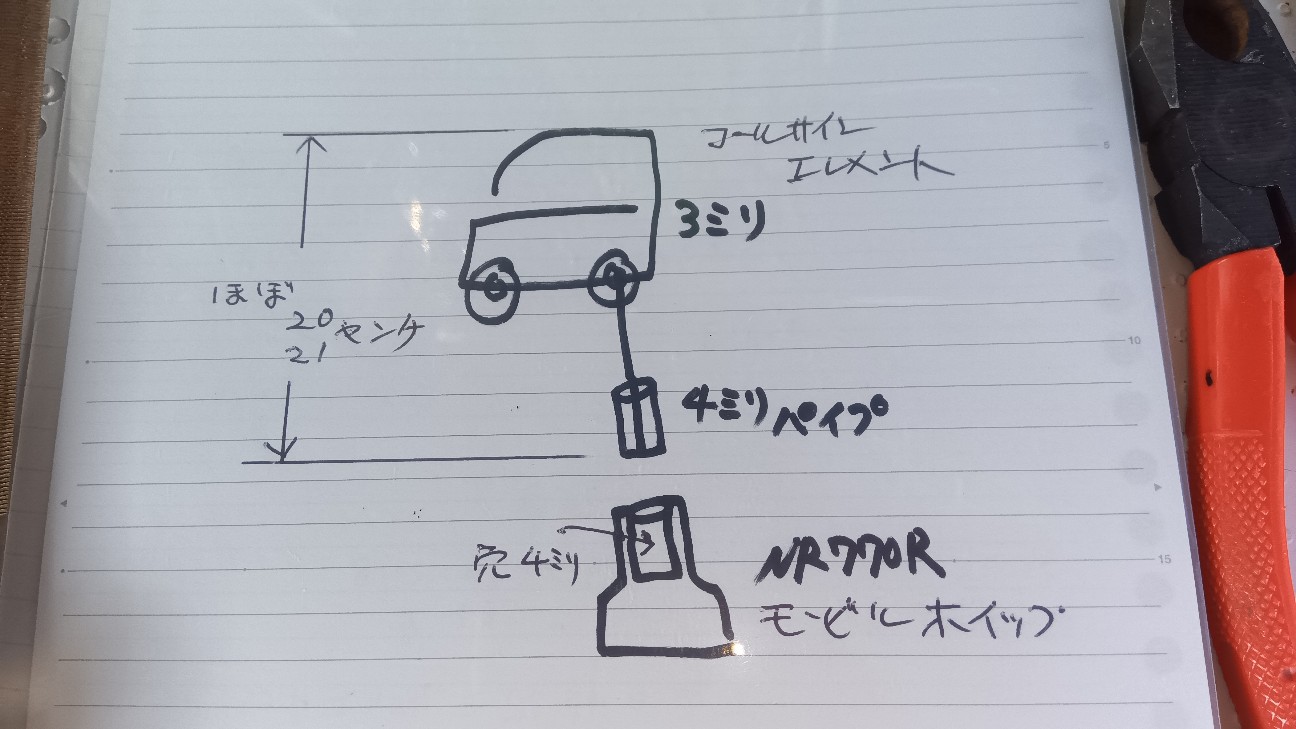 コールサイン
エレメント
3ミリ
ほぼ
20
21
センチ
4ミリ パイプ
穴4ミリ
NR770R
モービルホイップ
5
10
15